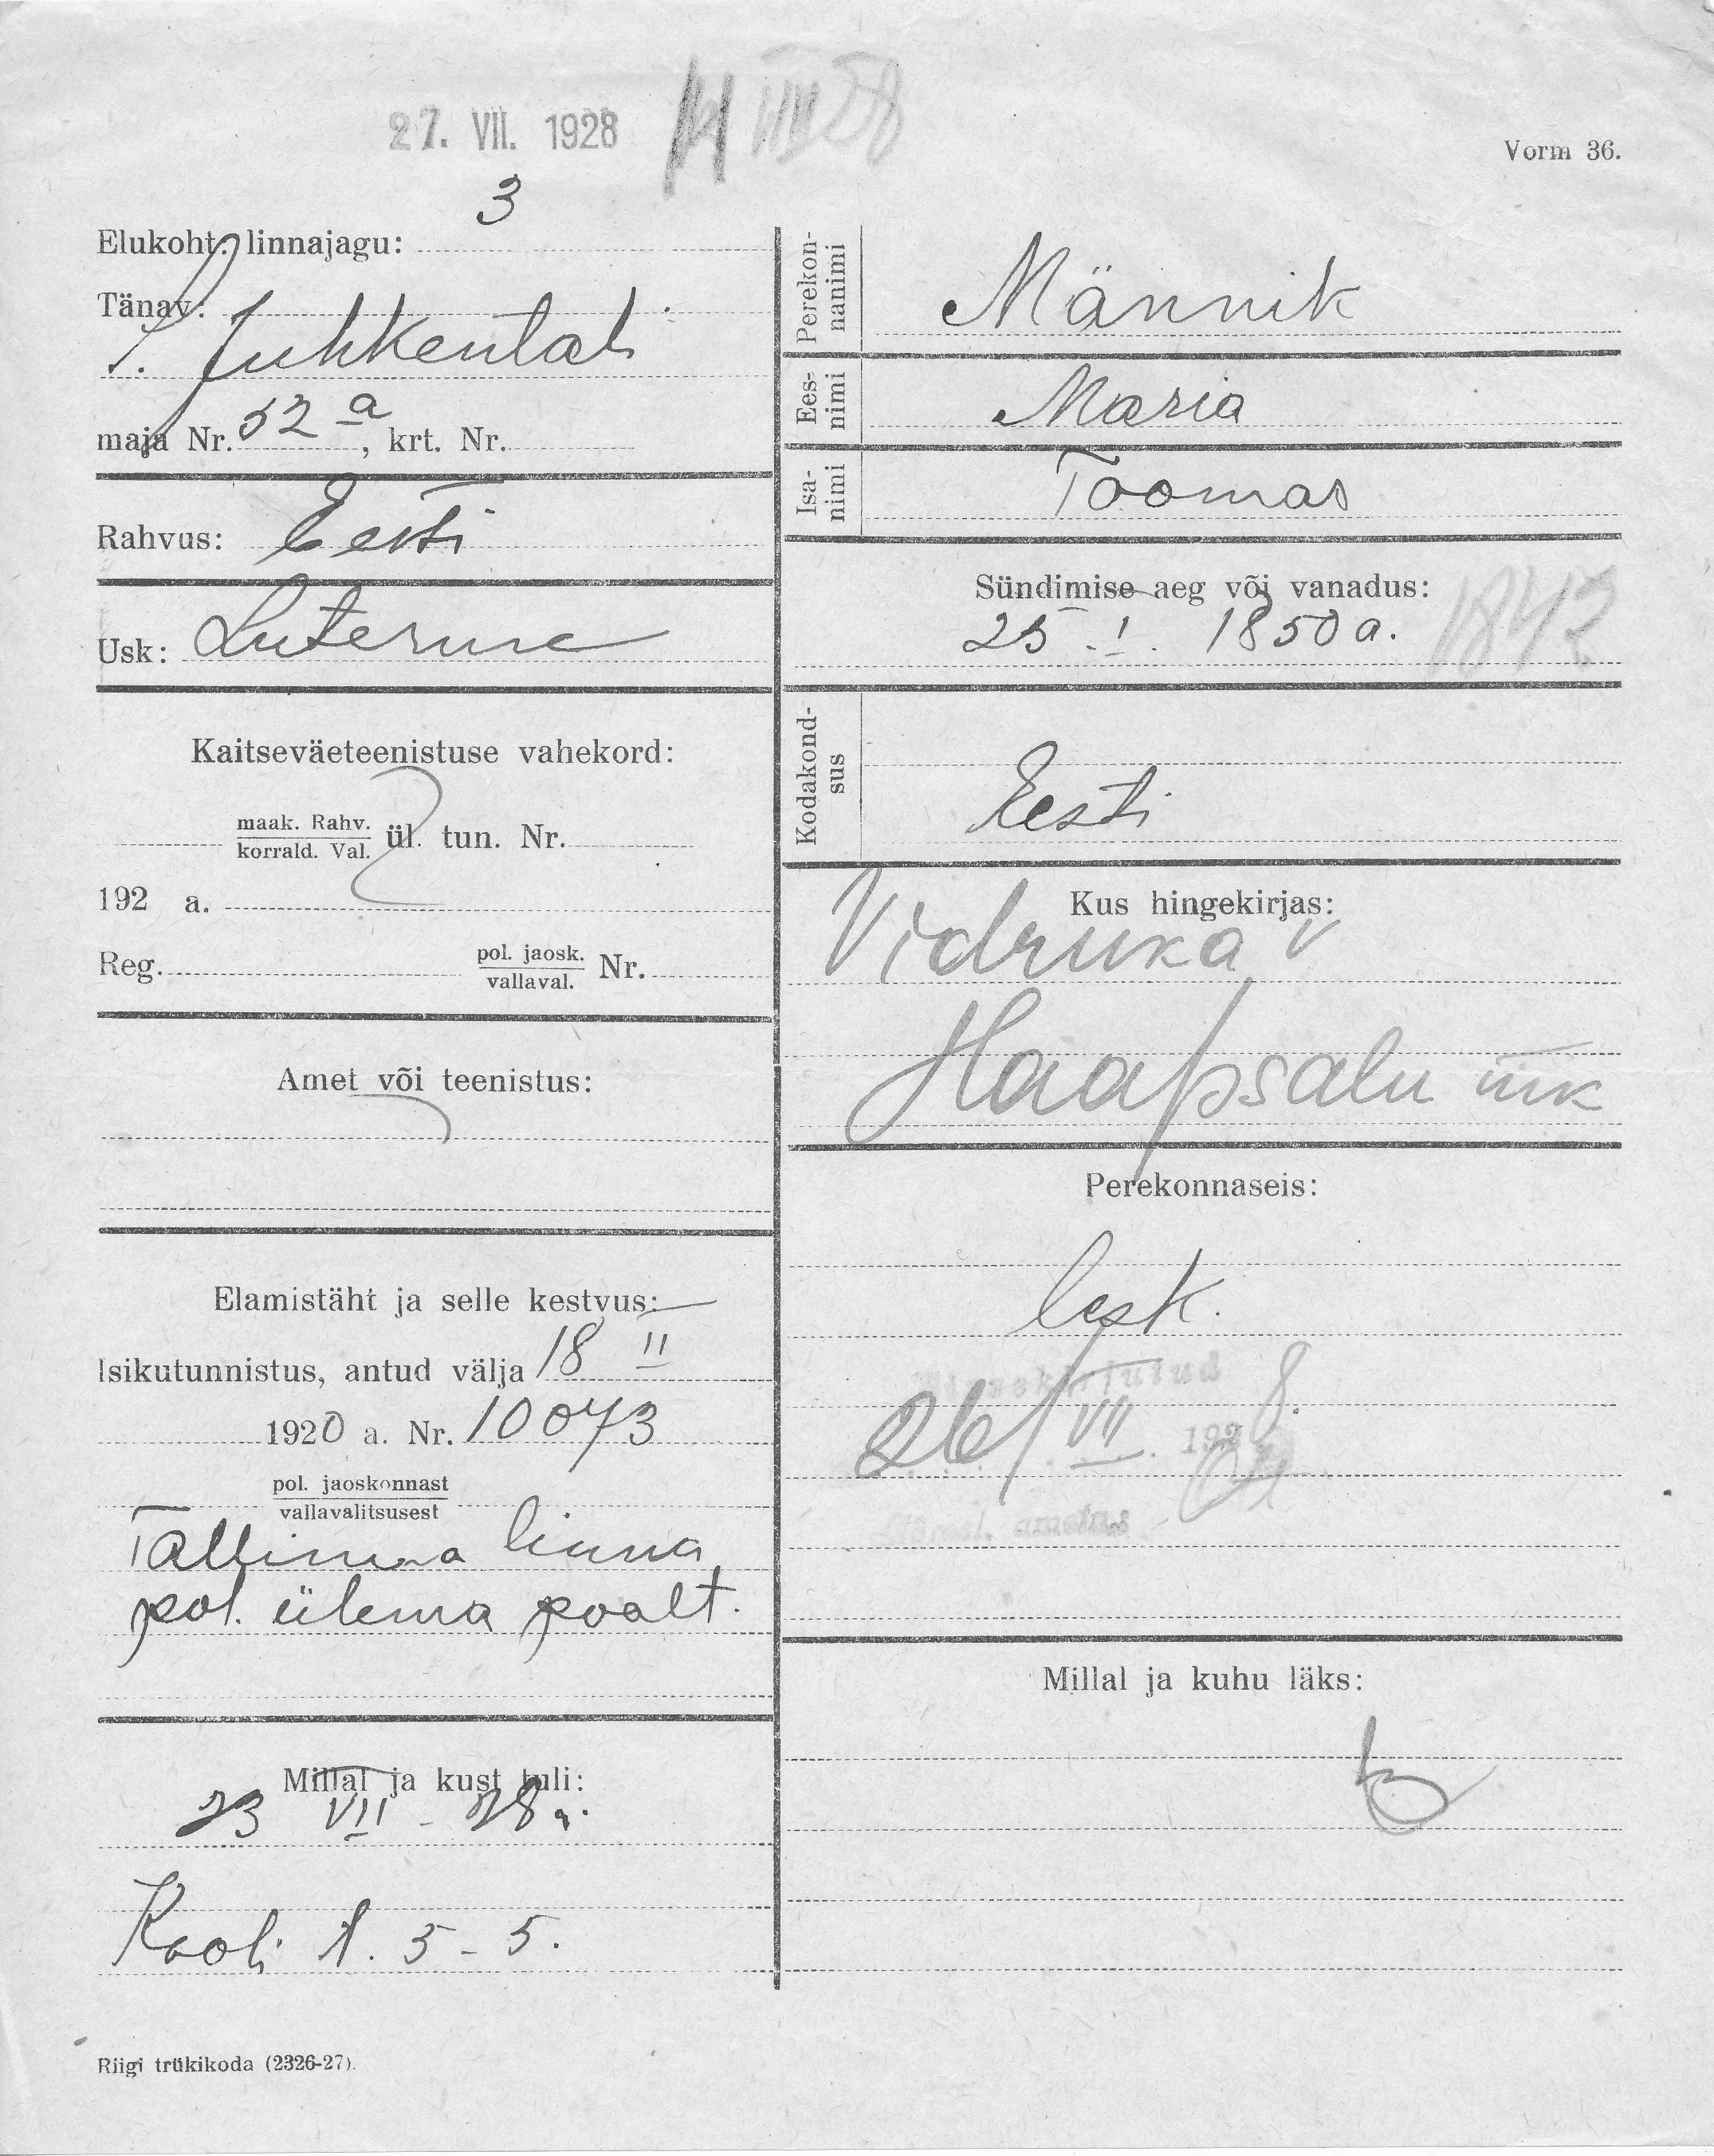 27. VII. 1928
Vorm 36.
3
Elukoht: linnajagu:
Tänav:
Juhkentali
maja Nr. 52 a, krt. Nr.
Rahvus: Eesti
Usk: Luterus
Kaitseväeteenistuse vahekord:
maak. Rahv.
korrald. Val. ül. tun. Nr.
192 a.
Reg. pol. jaosk.
vallaval. Nr.
Amet või teenistus:
Elamistäht ja selle kestvus: —
Isikutunnistus, antud välja 18 II
1920 a. Nr. 10073
pol. jaoskonnast
vallavalitsusest
Tallinna linna
pol. ülema poolt.
Millal ja kust tuli:
23 VII - 28 a.
Kooli t. 5 - 5.
Riigi trükikoda (2326-27).
Perekon-
nanimi
Männik
Ees-
nimi
Maria
Isa-
nimi
Toomas
Sündimise aeg või vanadus:
25. I. 1850 a. 1842
Kodakond-
sus
Eesti
Kus hingekirjas:
Vidruka v
Haapsalu mk
Perekonnaseis:
lesk.
26/VII. 1928.
Millal ja kuhu läks: